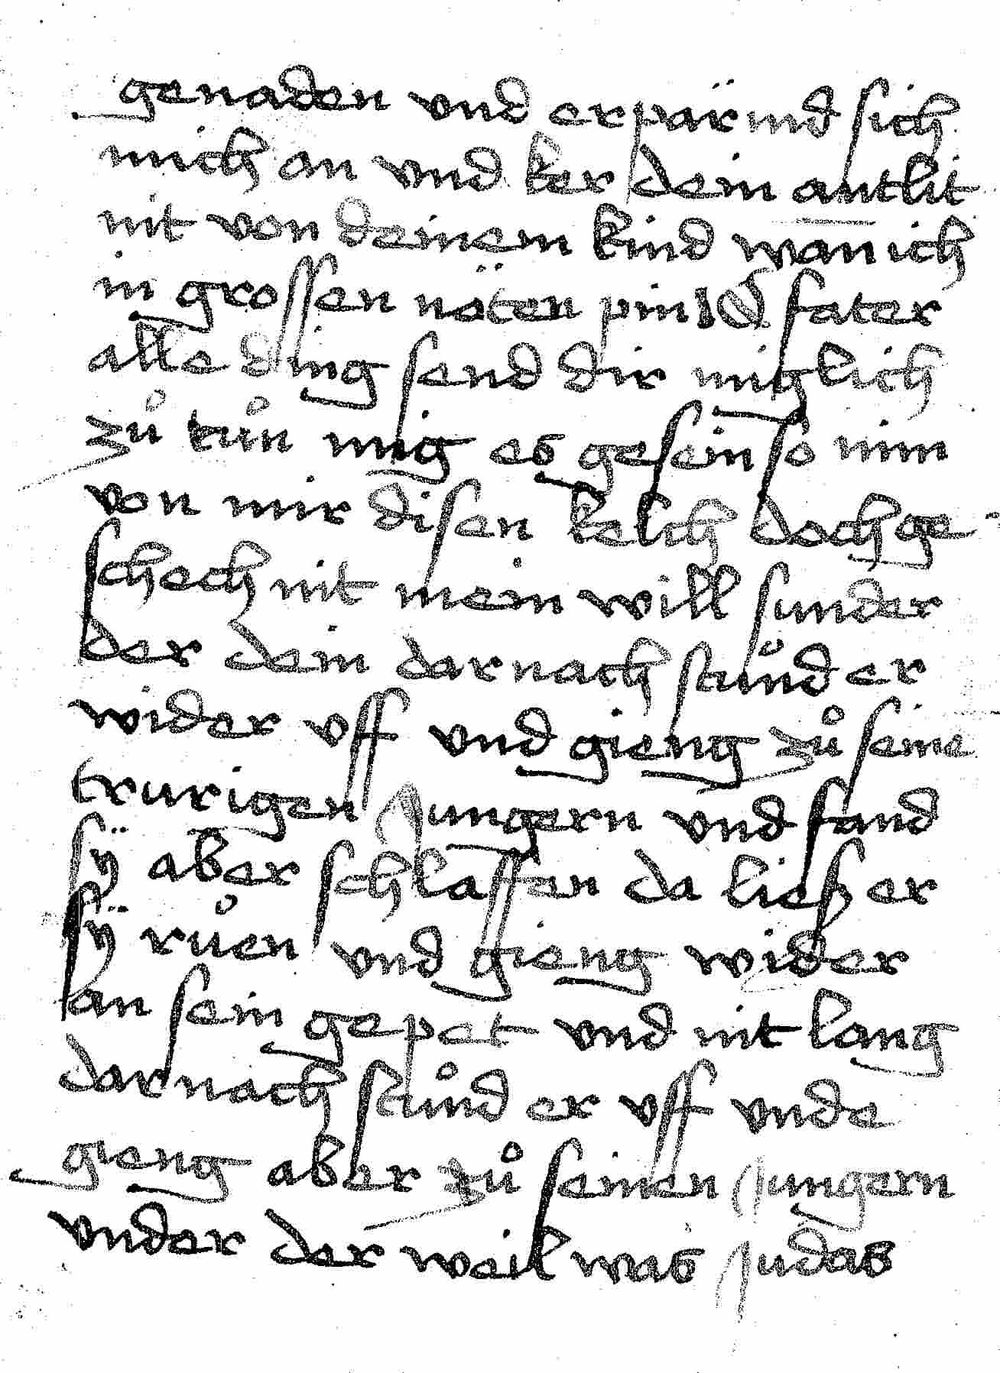 genaden vnd erpärmd sich
mich an vnd ker dein antlit
nit von deinem kind wan ich
in grossen nöten pin O fater
alle ding send dir miglich
zů tůn mig es gesein so nim
von mir disen kelch doch ge-
schech nit mein will sunder
der dein dar nach stůnd er
wider vff vnd gieng zů seine
trurigen Jungern vnd fand
sÿ aber schlaffen da ließ er
sÿ růen vnd gieng wider
an sein gepet vnd nit lang
dar nach stůnd er vff vnde
gieng aber zů seinen Jungern
vnder der weil was Judas